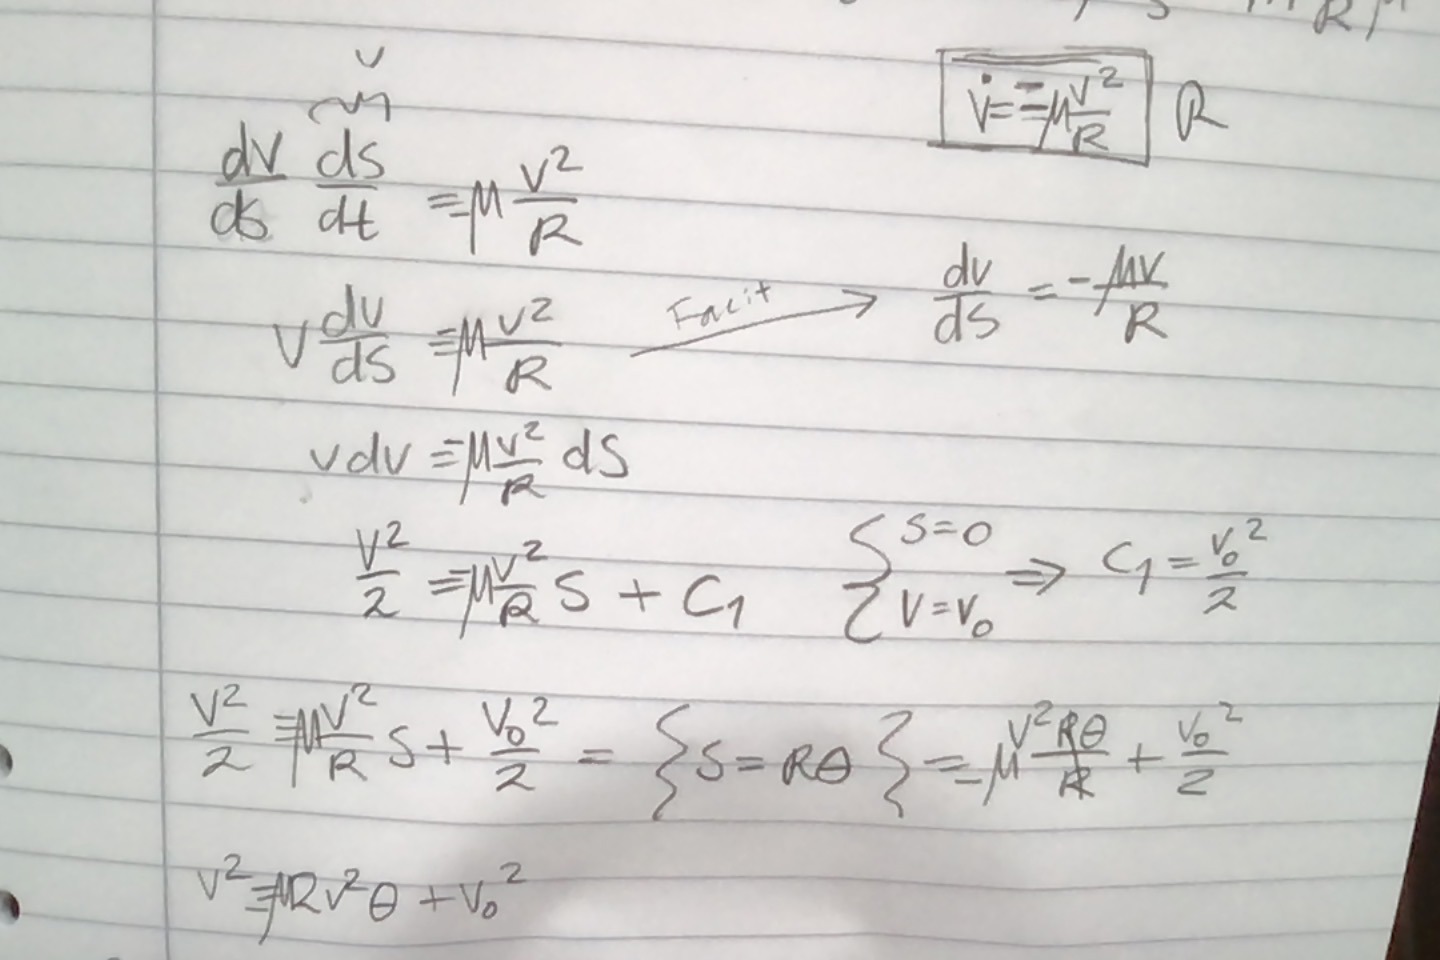 v̇ = -μ v²/R R
v
dv/ds ds/dt = -μ v²/R
v dv/ds = -μ v²/R Facit → dv/ds = -μv/R
v dv = -μ v²/R ds
v²/2 = -μ v²/R s + C₁ { s=0 v=v₀ ⇒ C₁ = v₀²/2
v²/2 = -μ v²/R s + v₀²/2 = { s = Rθ } = -μ v²Rθ/R + v₀²/2
v² = -μRv²θ + v₀²